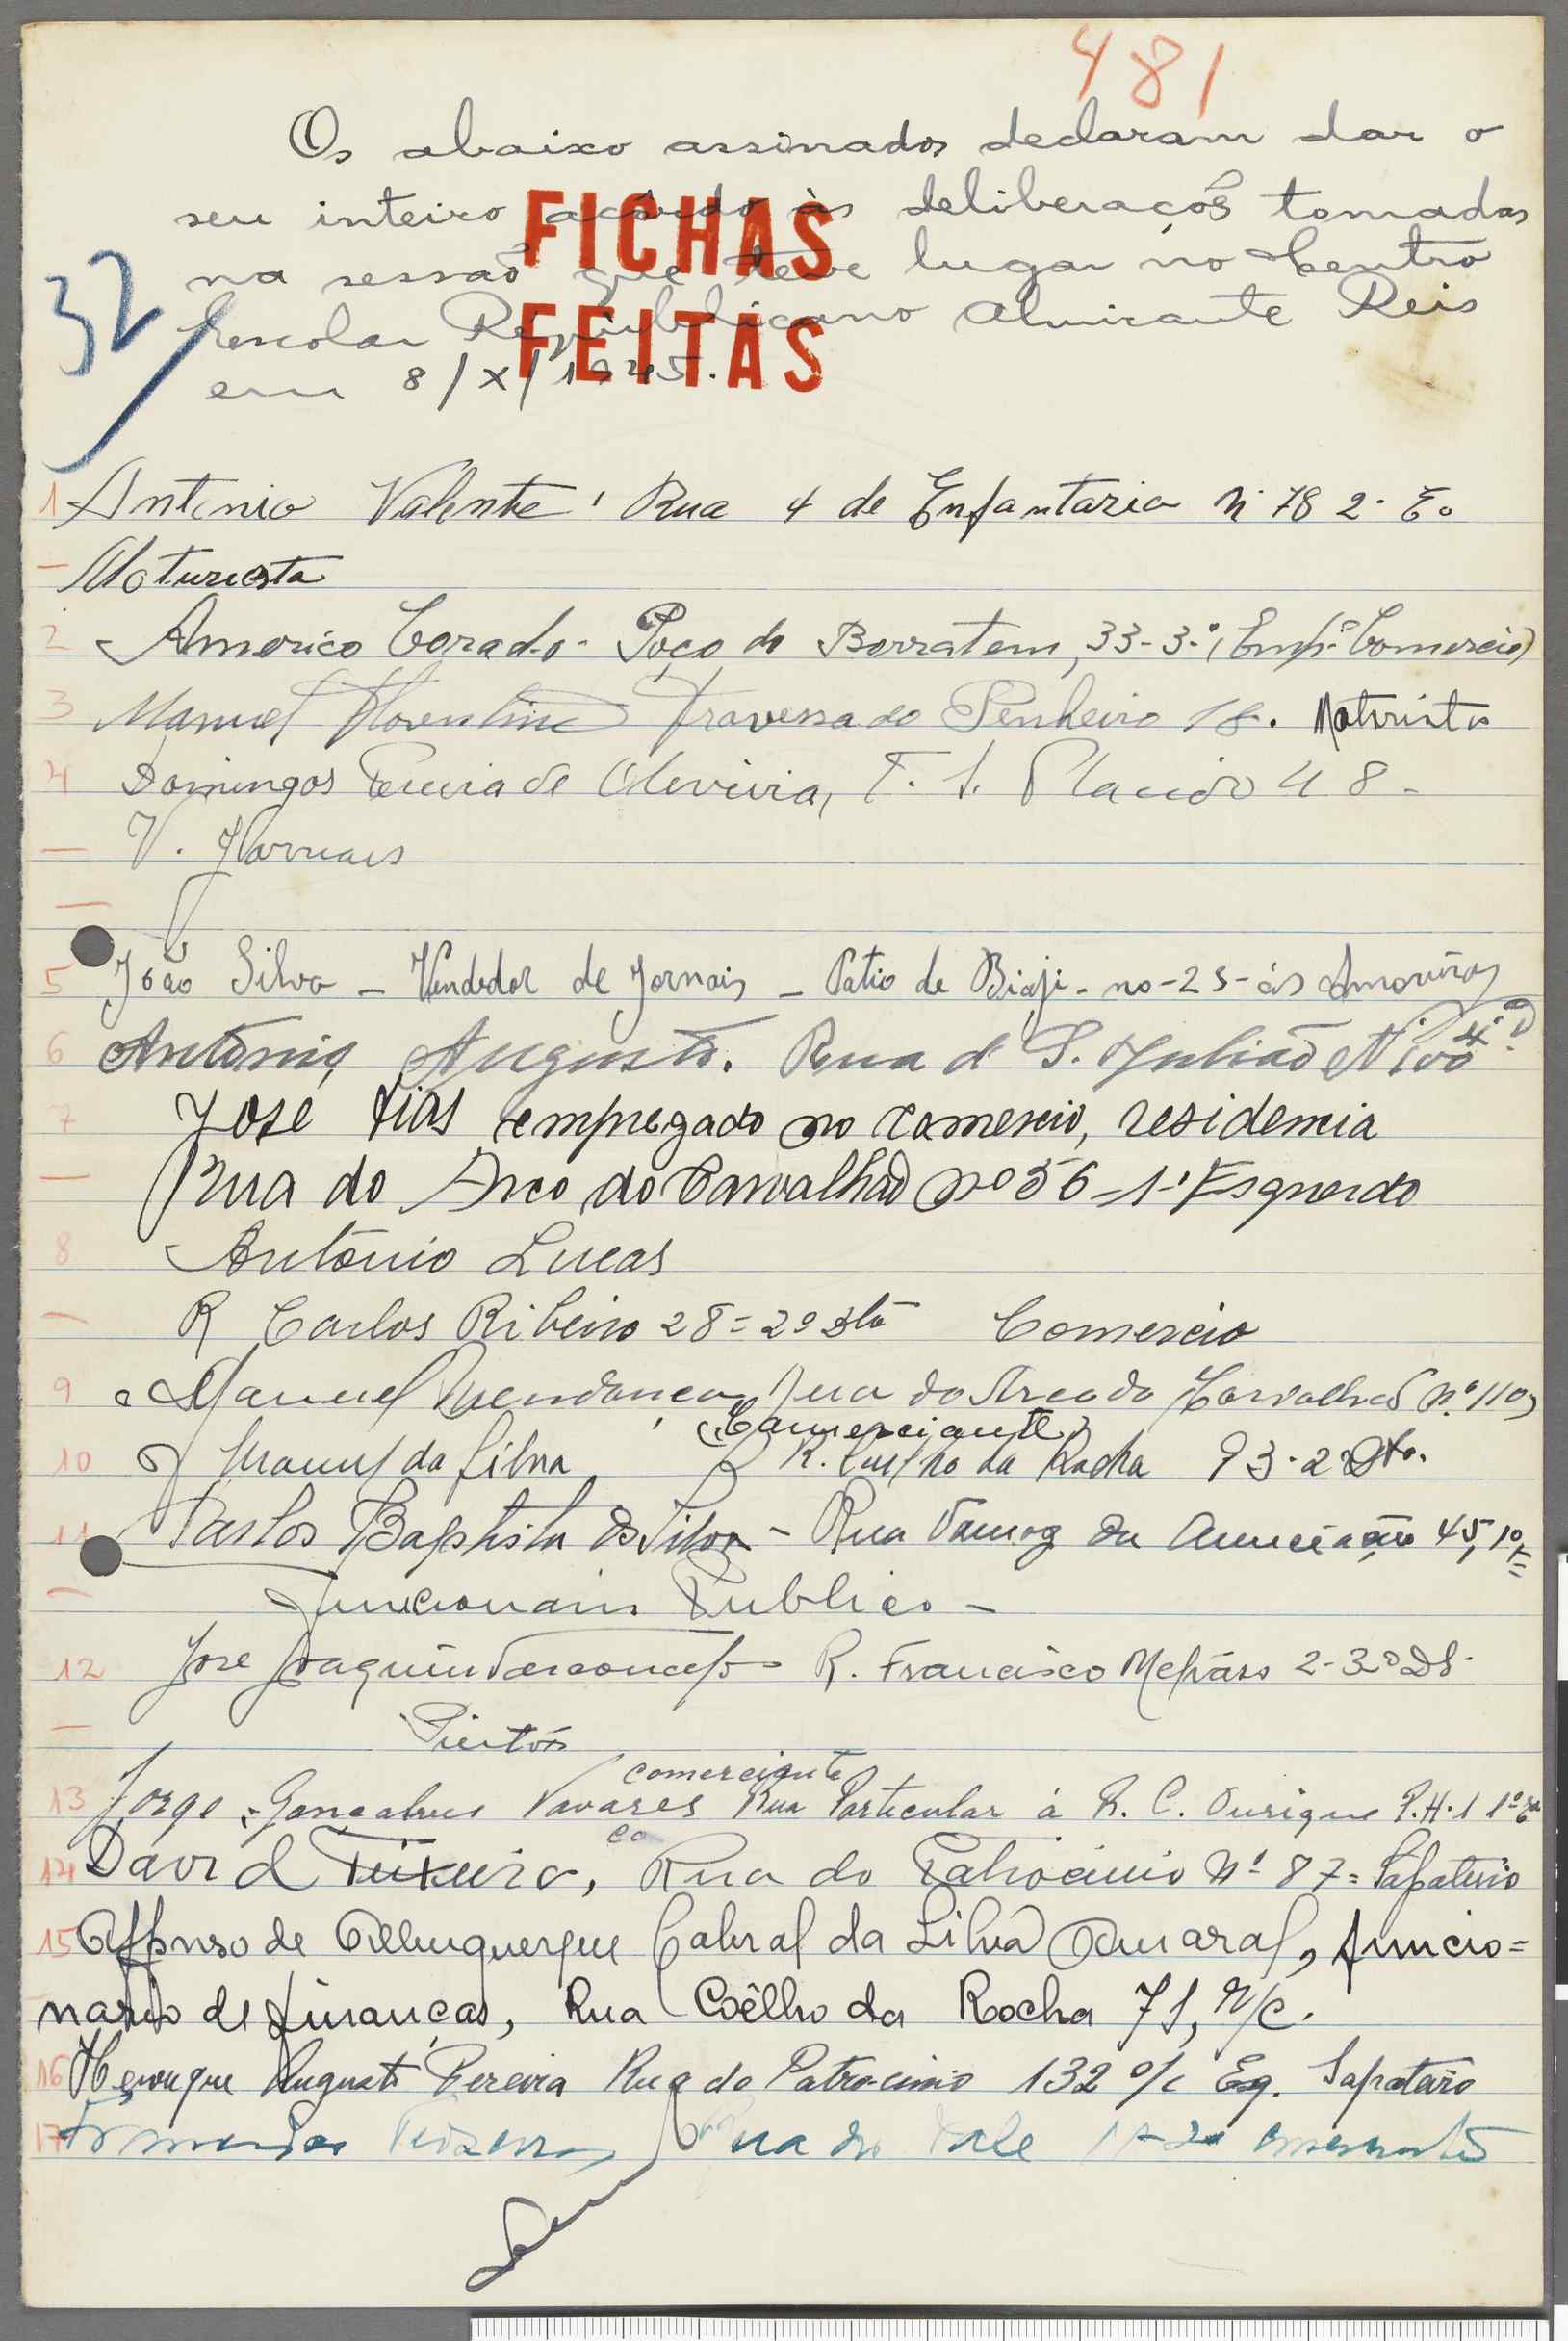 481
Os abaixo assinados declaram dar o
seu inteiro acôrdo às deliberações tomadas
FICHAS
na sessão que teve lugar no Centro
32
Escolar Republicano Almirante Reis
FEITAS
em 8/X/1945.
1 Antonio Valente, Rua 4 de Enfantaria Nº 78 2º Eº
— Moturista
2 Americo Corado - Poço do Borratem, 33-3º (Empº Comercio)
3 Manuel Florentino Travessa do Pinheiro 18. Motorista
4 Domingos Pereira de Oliveira, T. S. Placido 48 -
— V. Jornais
—
5 João Silva - Vendedor de Jornais - Patio de Biaji - no - 25 - ás Amoreiras
6 António Augusto. Rua de S. Julião Nº 100 4º D
7 José Dias empregado no comercio, residencia
— Rua do Arco do Carvalhão nº 56 - 1º Esquerdo
8 António Lucas
— R Carlos Ribeiro 28 = 2º Dtº Comercio
9 Manuel Mendonça Rua do Arco do Carvalhão Nº 110
(Comerciante)
10 Manuel da Silva R. Coelho da Rocha 93-2º Dto.
11 Carlos Baptista da Silva - Rua Tomaz da Anunciação 45, 1º E
— Funcionario Publico -
12 José Joaquim Vasconcelos R. Francisco Metrass 2-3º Dt.
— Pintor
comerciante
13 Jorge Gonçalves Tavares Rua Particular á R. C. Ourique P.H.1 1º
co
14 David Teixeira, Rua do Patrocinio Nº 87 = Sapateiro
15 Affonso de Albuquerque Cabral da Silva Amaral, funcio=
nario de finanças, Rua Coêlho da Rocha 71, r/c.
16 Henrique Augusto Pereira Rua do Patrocinio 132 r/c Esq. Sapateiro
17 Teixeira Rua do Vale